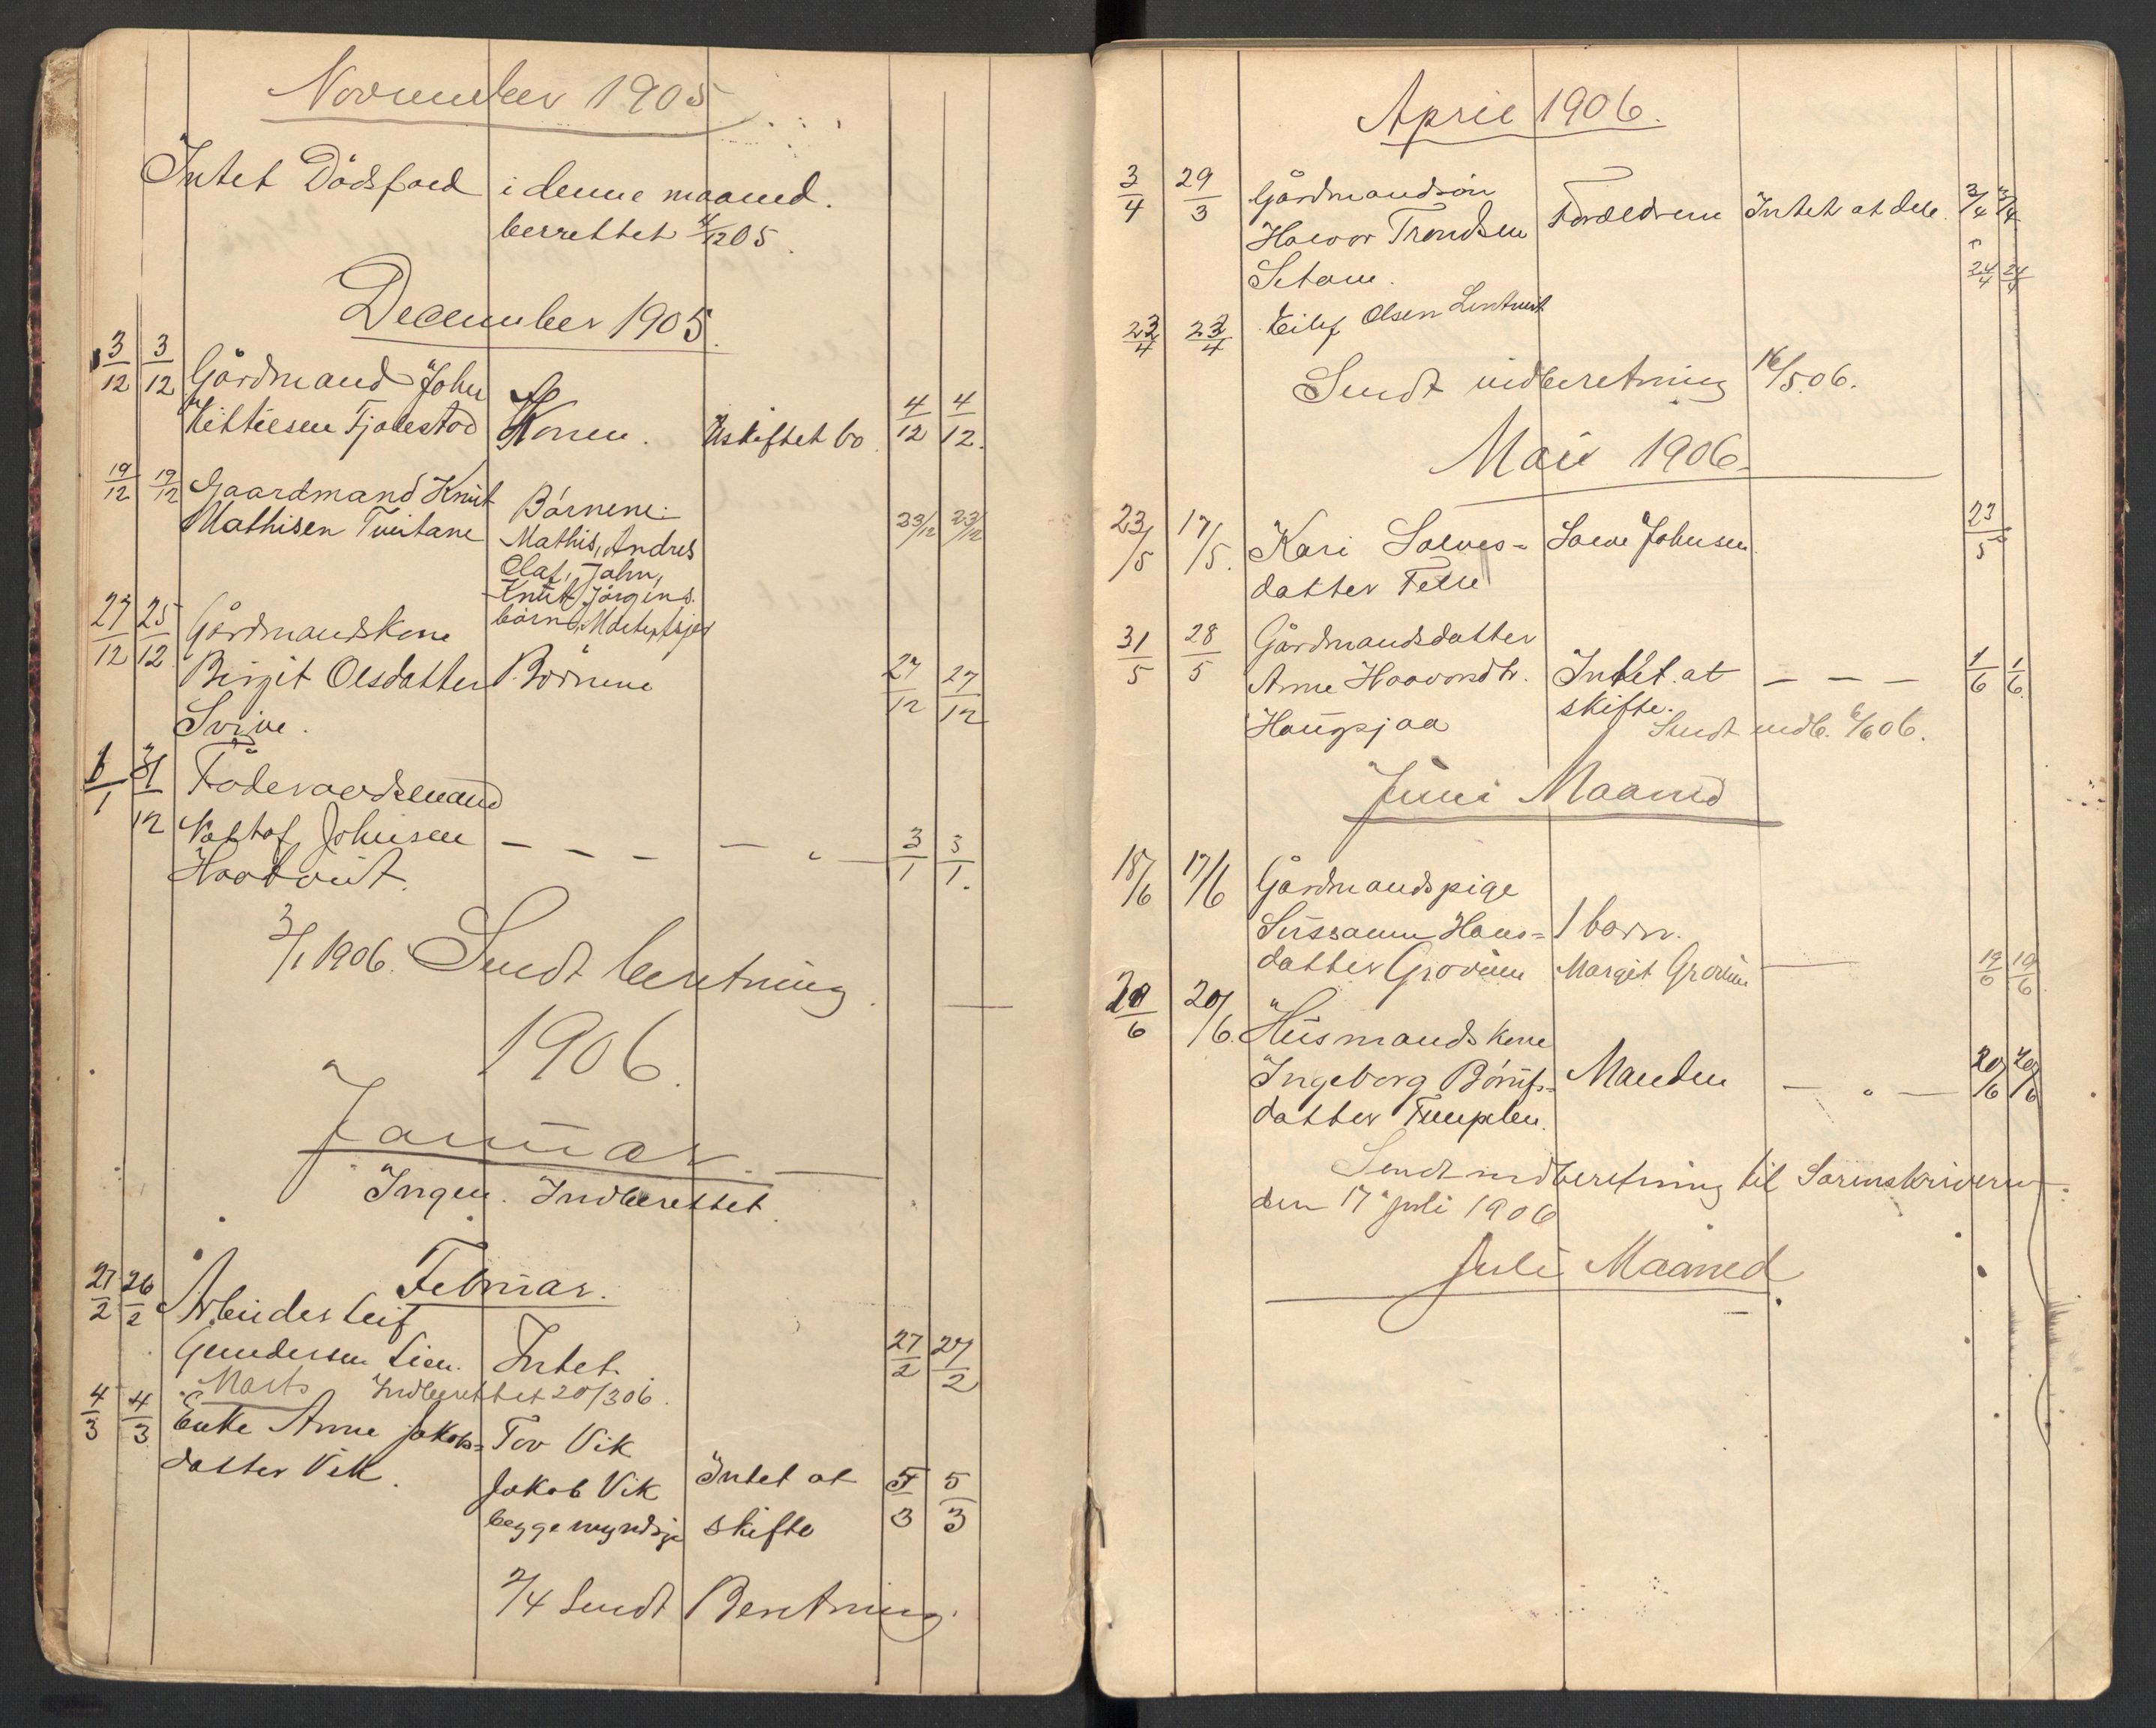 November 1905
Intet Dødsfald i denne maaned.
berettet 4/12 05.
December 1905.
3/12 3/12 Gårdmand John
Kittilsen Fjalestad Konen. Uskiftet bo 4/12 4/12.
19/12 19/12 Gaardmand Knut
Mathisen Tveitane Børnene: 23/12 23/12
Mathis, Andres
Olaf, John,
Knut, Jørgins.
børn
27/12 25/12 Gårdmandskone
Birgit Olsdatter Børnene 27/12 27/12
Svive.
1/1 31/12 Föderaadsmand
Johnsen — — — — " — 3/1 3/1.
3/1 1906. Sendt beretning.
1906.
Januar.
Ingen Indberettet.
Februar.
27/2 26/2 Arbeider Leif
Gundersen Lien. Intet. 27/2 27/2
Marts Indberettet 20/3 06.
4/3 4/3 Enke Anne Jakobs=
datter Vik. Tov Vik
Jakob Vik Intet at 5/3 5/3
begge myndige skifte
2/4 Sendt Beretning.
April 1906.
3/4 29/3 Gårdmandsøn
Halvor Trondsen Forældrene Intet at dele. 3/4 3/4
24/4 24/4
23/4 23/4 Eilef Olsen
Sendt indberetning 16/5 06.
Mai 1906.
23/5 17/5. Kari Solves= Solve Johnsen 23/5
datter Felle
31/5 28/5 Gårdmandsdatter
Anne Haavordtr. Intet at — — — 1/6 1/6
Haugsjaa skifte.
Sendt indb. 6/6 06.
Juni Maaned
18/6 17/6 Gårdmandspige
Sussanne Hans= 1 barn.
datter Grovum Margit Grovum — 19/6 19/6
20/6 20/6. Husmandskone
Ingeborg Manden — " — 20/6 20/6
datter Tumplen.
Sendt indberetning til Sorenskriveren
den 17 juli 1906
Juli Maaned